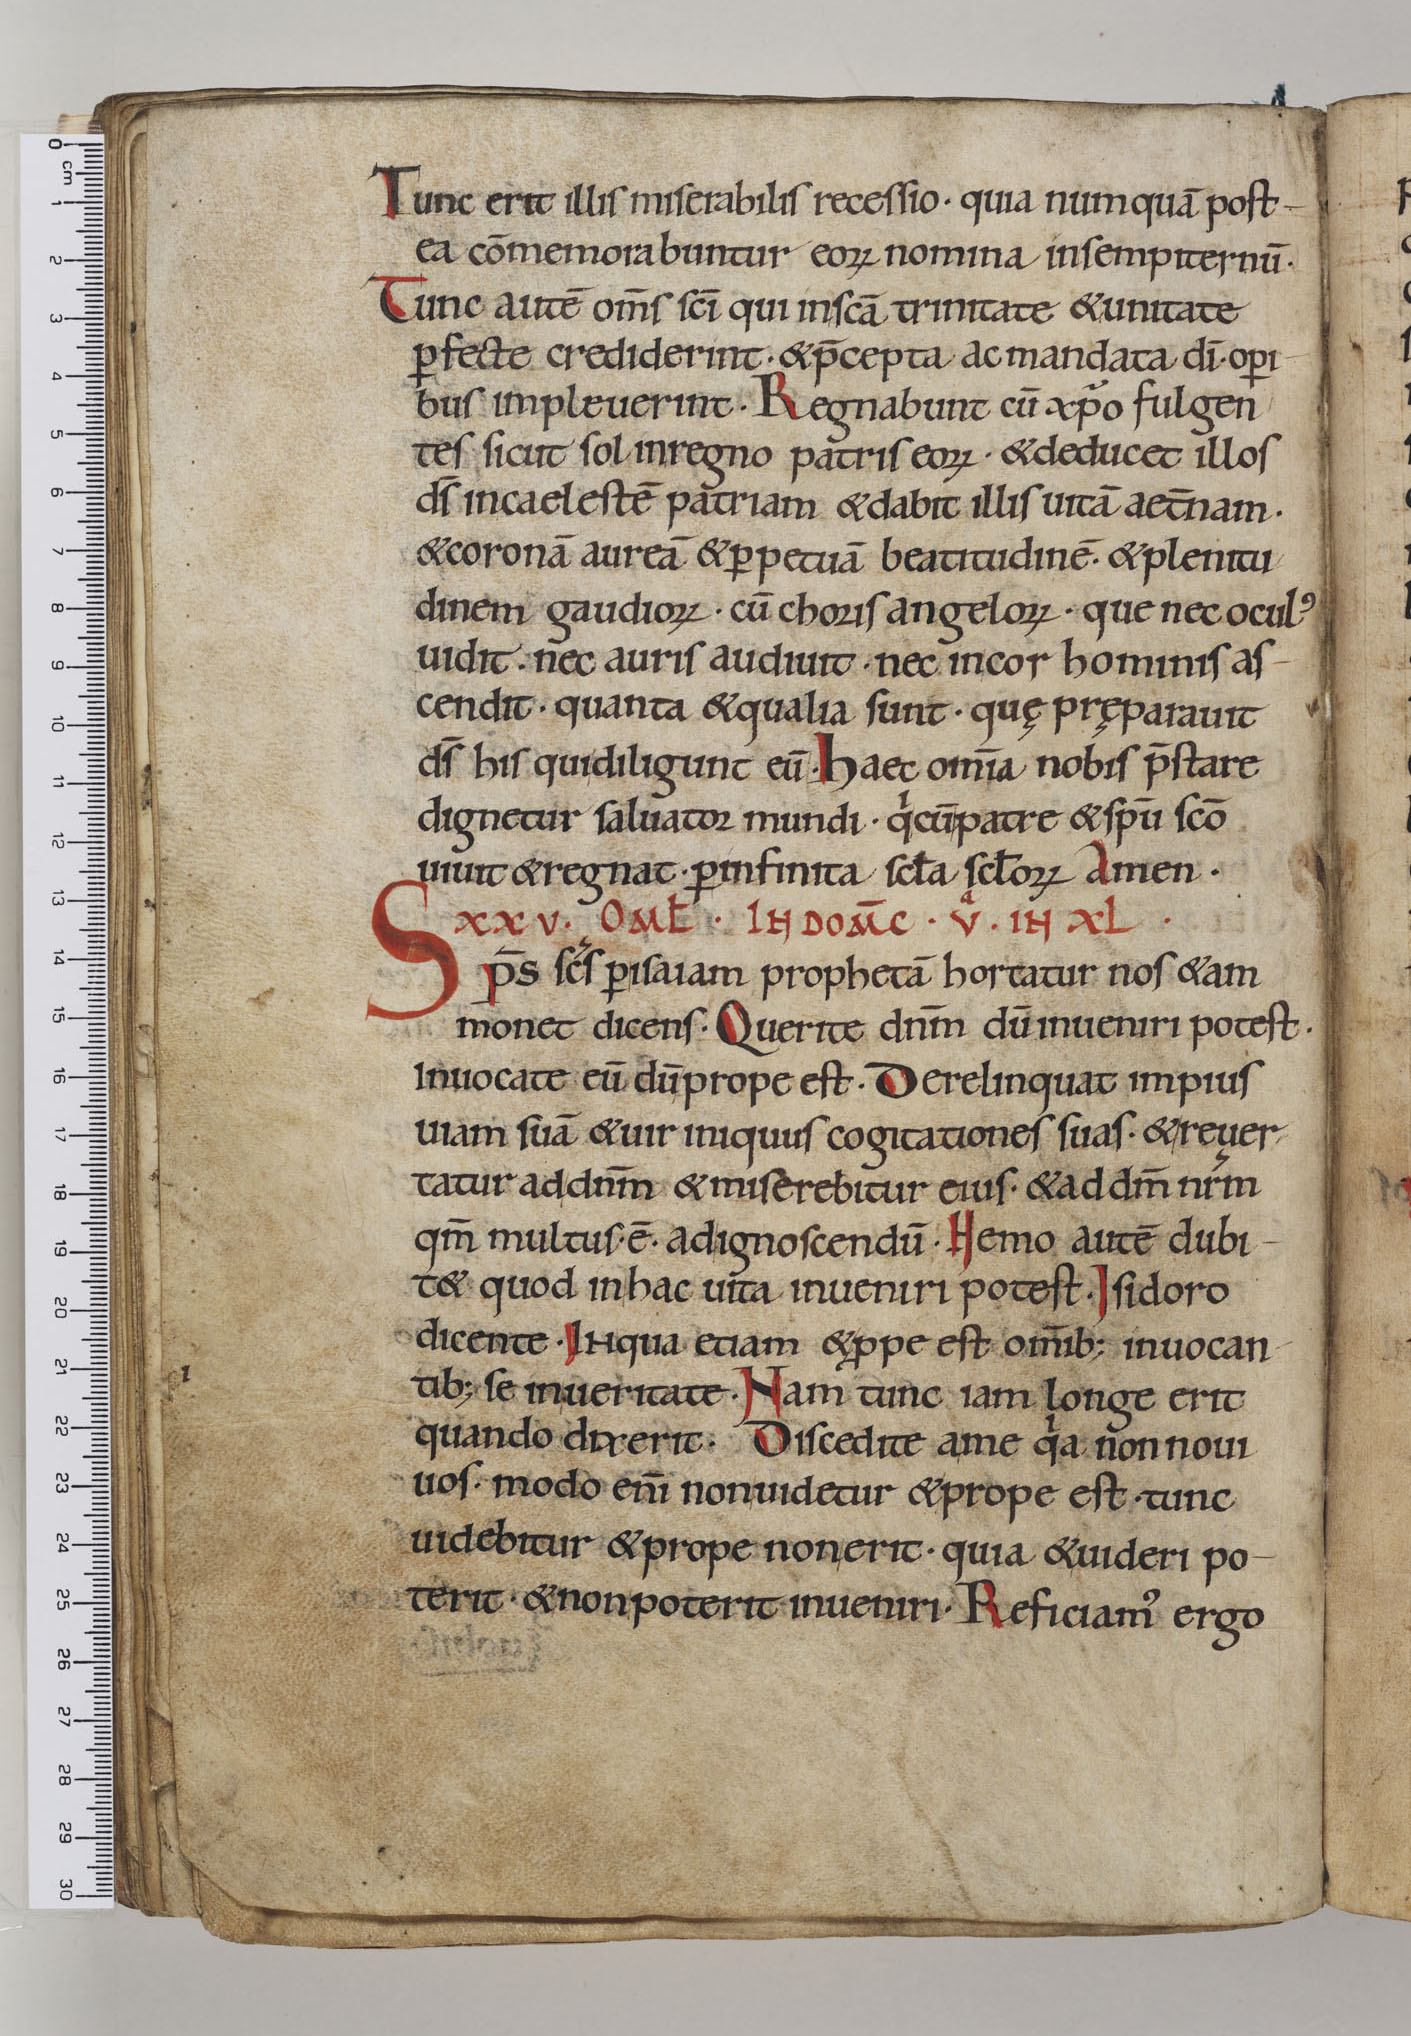 Tunc erit illis miserabilis recessio · quia numquā post-
ea cōmemorabuntur eoꝝ nomina insempiternū·
Tunc autē om̄s sc̄i qui inscā trinitate &unitate
ꝑfecte crediderint · &p̄cepta ac mandata dī·oꝑi-
bus impleuerint · Regnabunt cū xp̄o fulgen
tes sicut sol inregno patris eoꝝ · &deducet illos
ds̄ incaelestē patriam &dabit illis uitā aet̄nam·
&coronā aureā &ꝑpetuā beatitudinē· &plenitu
dinem gaudioꝝ · cū choris angeloꝝ · que nec oculꝰ
uidit · nec auris audiuit · nec incor hominis as-
cendit · quanta &qualia sunt · quę pręparauit
ds̄ his quidiligunt eū · Haec om̄ia nobis p̄stare
dignetur saluator mundi · qͥcūpatre &spū scō
uiuit &regnat · ꝑinfinita scl̄a scl̄oꝝ Amen ·
XXV · OML̄ · IN DOM̄C · V̇ · IN XL ·
Sp̄s sc̄s ꝑisaiam prophetā hortatur nos &am
monet dicens · Querite dnm̄ dū inueniri potest ·
Inuocate eū dūprope est · Derelinquat impius
uiam suā &uir iniquus cogitationes suas · &reuer-
tatur addnm̄ &miserebitur eius · &ad dm̄ nr̄m
qm̄ multus·ē· adignoscendū · Nemo autē dubi-
t& quod inhac uita inueniri potest · Isidoro
dicente · Inqua etiam &ꝓpe est om̄ib; inuocan-
tib; se inueritate · Nam tunc iam longe erit
quando dixerit · Discedite ame qͥa non noui
uos · modo enī nonuidetur &prope est · tunc
uidebitur &prope nonerit · quia &uideri po-
terit · &nonpoterit inueniri · Reficiamꝰ ergo
0
cm
1
2
3
4
5
6
7
8
9
10
11
12
13
14
15
16
17
18
19
20
21
22
23
24
25
26
27
28
29
30